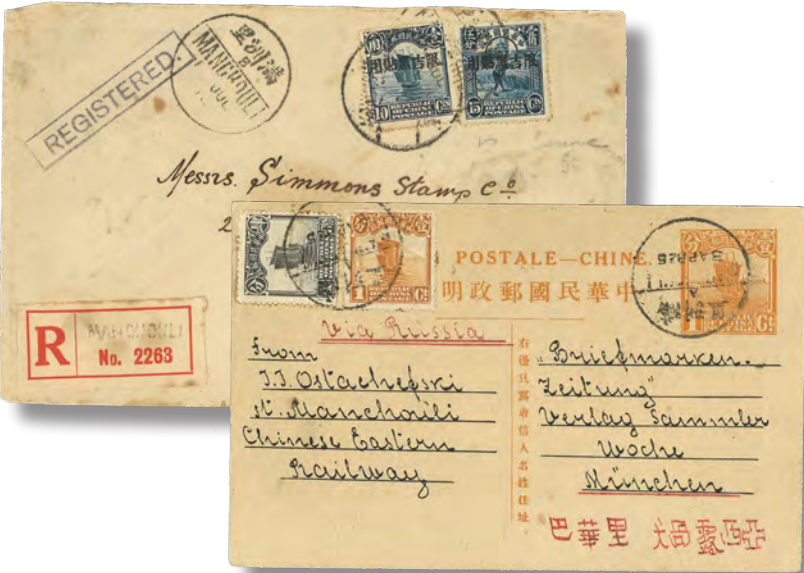 REGISTERED.
滿洲里
MANCHOULI
8
JUL
限吉黑貼用
REPUBLIC
OF CHINA
POSTAGE
10 Cts
限吉黑貼用
REPUBLIC
OF CHINA
POSTAGE
15 Cts
Messrs. Simmons Stamp Co
2
R MANCHOULI
No. 2263
1 Cts
POSTALE—CHINE.
中華民國郵政明
8 APR 25
1 Cts
Via Russia
From
J.J. Ostachefski
st. Manchouli
Chinese Eastern
Railway
右後只寫收信人名姓住址
"Briefmarken-
Zeitung"
Verlag Sammler
Woche
München
亞西露 里華巴